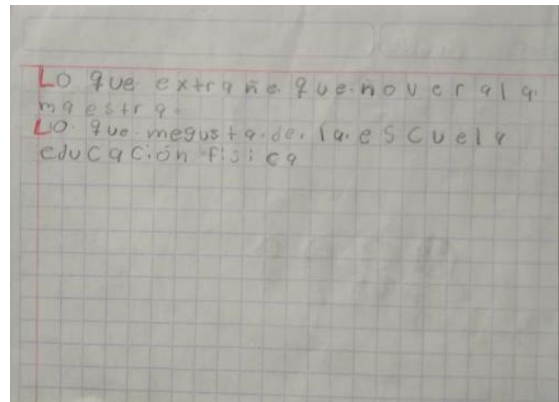 Lo que extrañe que no ver a la
maestra.
Lo que me gusta de la escuela
educación fisica